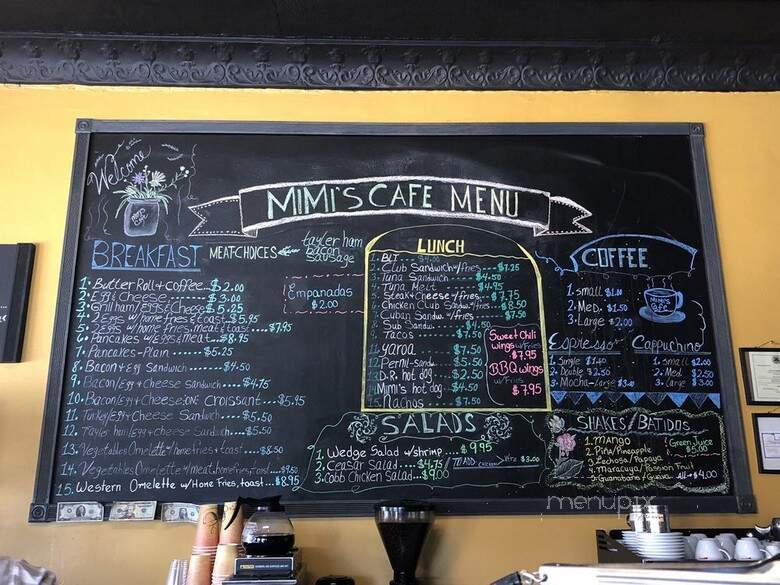 Welcome
MIMI'S CAFE MENU
BREAKFAST
MEAT CHOICES
tayler ham
bacon
sausage
1. Butter Roll + Coffee $2.00
2. Egg & Cheese $3.00
3. Grill ham/Egg & Cheese $5.25
4. 2 Eggs w/home fries & toast $5.95
5. 2 Eggs w/home fries, meat & toast $7.95
6. Pancakes w/Eggs & Meat $8.95
7. Pancakes-Plain $5.25
8. Bacon + Egg Sandwich $4.50
9. Bacon/Egg + Cheese Sandwich $4.75
10. Bacon/Egg + Cheese on Croissant $5.95
11. Turkey/Egg + Cheese Sandwich $5.50
12. Tayler ham/Egg + Cheese Sandwich $5.50
13. Vegetables Omelette/home fries + toast $8.50
14. Vegetables Omelette w/meat, home fries, toast $9.50
15. Western Omelette w/Home Fries, toast $8.95
Empanadas
$2.00
LUNCH
1. BLT $4.00
2. Club Sandwich w/fries $7.25
3. Tuna Sandwich $4.50
4. Tuna Melt $4.95
5. Steak + Cheese w/fries $7.75
6. Chicken Club Sandw. w/fries $8.50
7. Cuban Sandw. w/fries $7.50
8. Sub Sandw. $4.50
9. Tacos $7.50
11. yaroa $7.50
12. Pernil-Sand $5.50
13. D.R. hot dog $2.50
14. Mimi's hot dog $4.50
15. Nachos $7.50
Sweet Chili
wings w/Fries
$7.95
BBQ wings
w/Fries
$7.95
SALADS
1. Wedge Salad w/shrimp $9.95
2. Ceasar Salad $4.75 / TO ADD CHICKEN Xtra $3.00
3. Cobb Chicken Salad $9.00
COFFEE
1. small $1.00
2. Med. $1.50
3. Large $2.00
MIMI'S
CAFE
Espresso
1. Single $1.40
2. Double $2.50
3. Mocha-Large
Cappuchino
1. Small $2.00
2. Med $2.50
3. Large $3.00
SHAKES/BATIDOS
1. Mango
2. Piña/Pineapple
3. Lechosa/Papaya
4. Maracuya/Passion Fruit
5. Guanabana/Guava
All → $4.00
Green Juice
$5.00
menupix